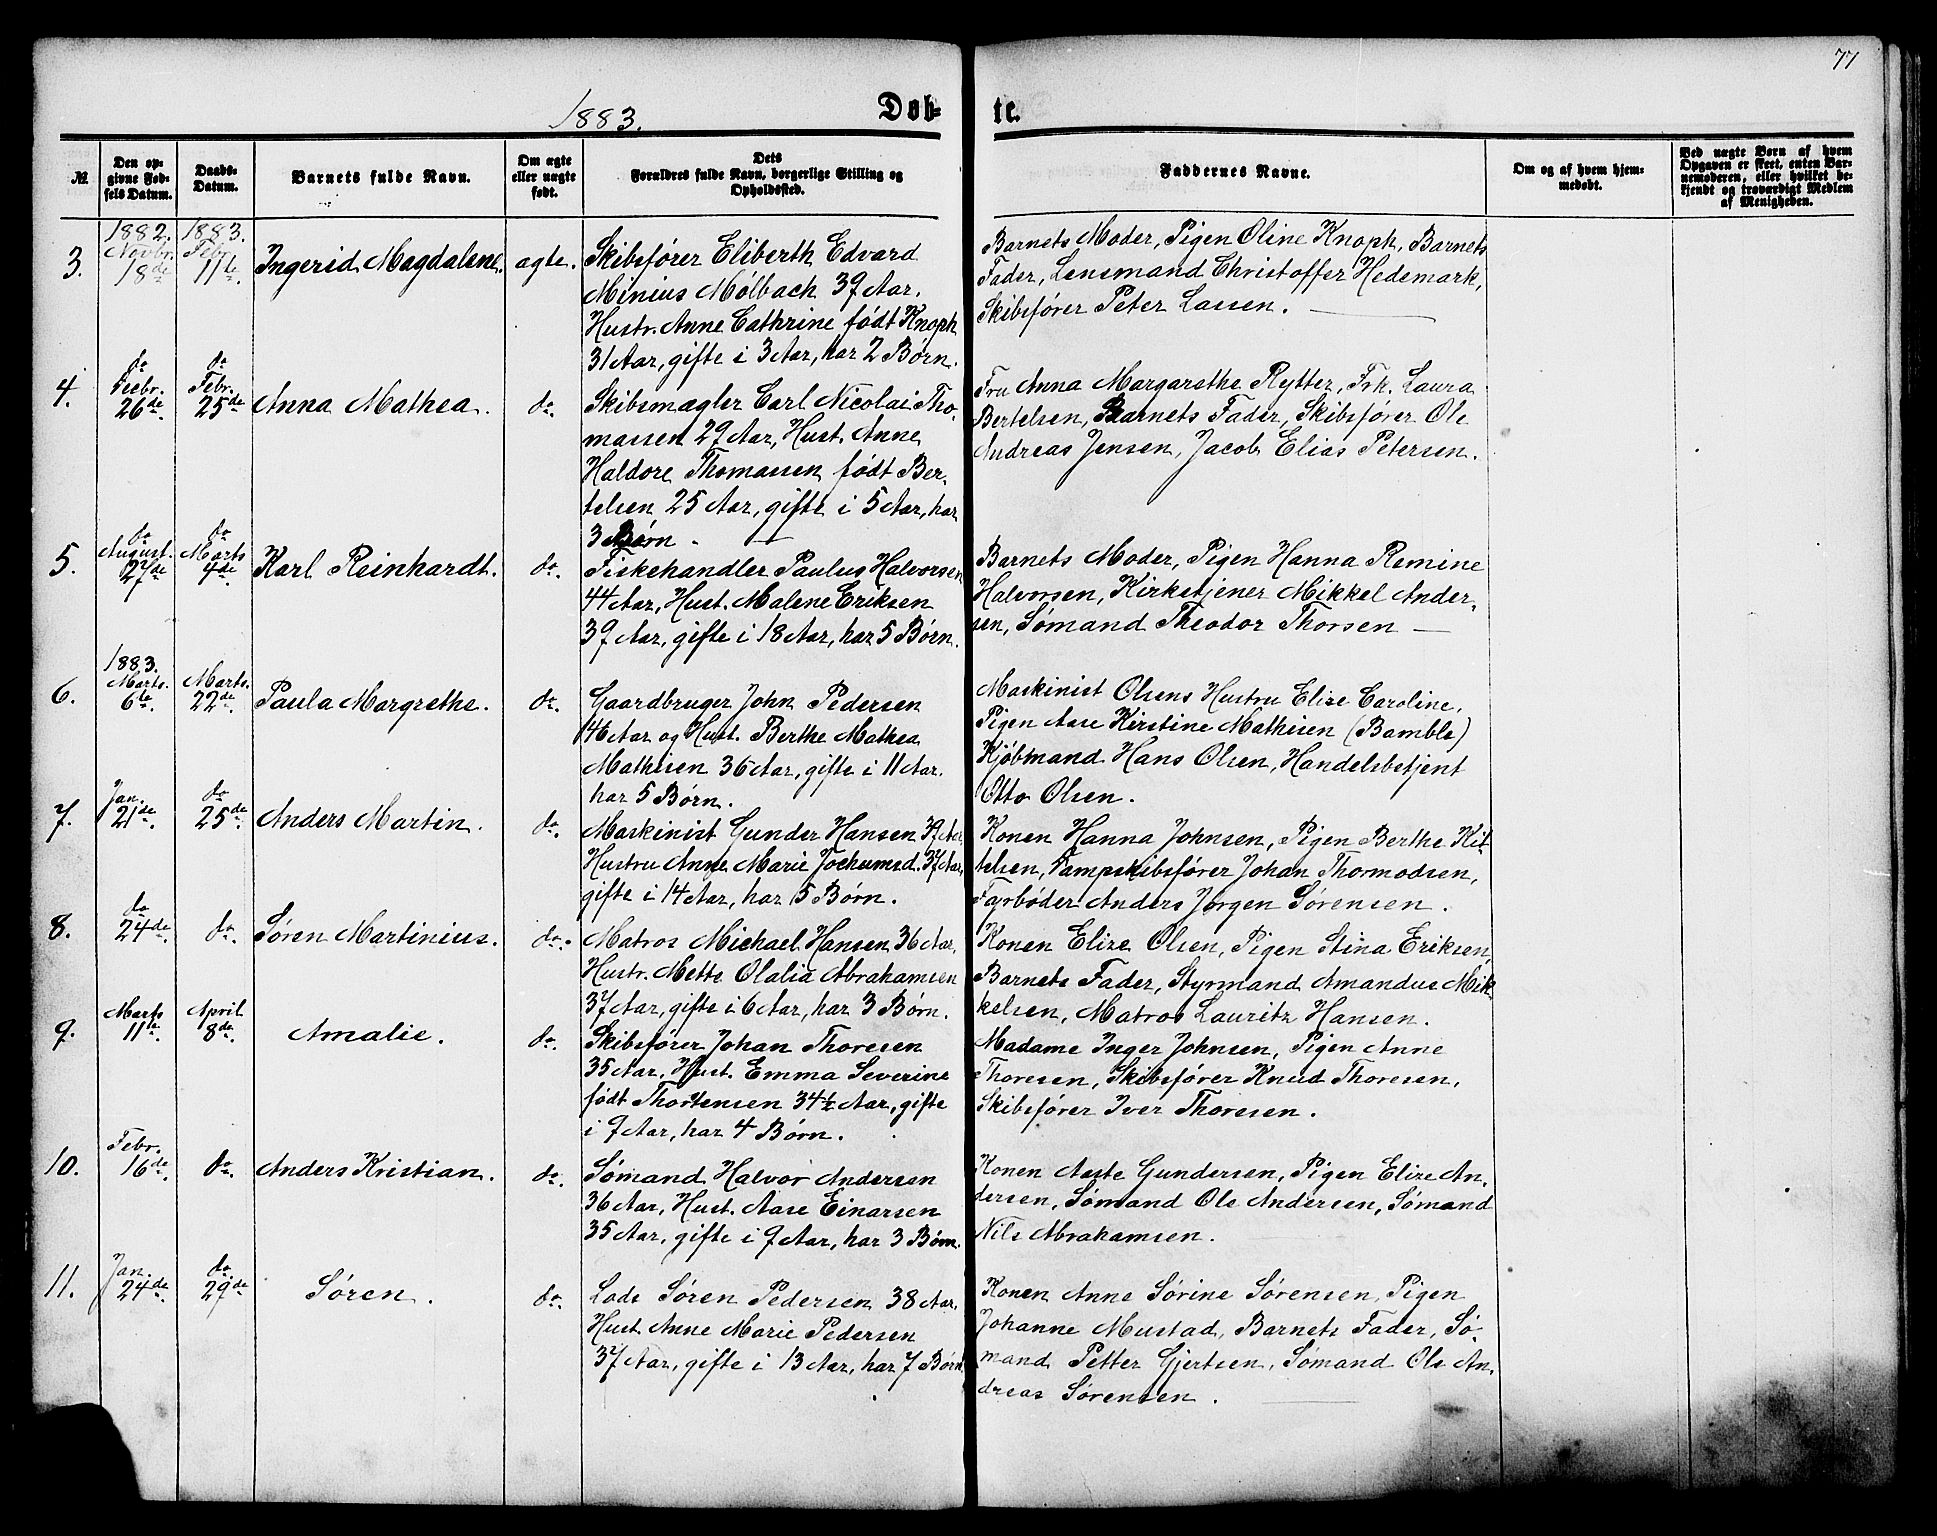 77
1883.
Døb-
te.
№
Den op-
givne Fød-
sels Datum.
Daabs-
Datum.
Barnets fulde Navn.
Om ægte
eller uægte
født.
Dets
Forældres fulde Navn, borgerlige Stilling og
Opholdssted.
Faddernes Navne.
Om og af hvem hjem-
medøbt.
Ved uægte Børn af hvem
Opgaven er skeet, enten Bar-
nemoderen, eller hvilket be-
kjendt og troværdigt Medlem
af Menigheden.
3.
1882.
Novbr.
18de
1883.
Febr.
11te.
Ingerid Magdalene.
ægte.
Skibsfører Eliberth Edvard
Minius Mølbach 39 Aar.
Hustr. Anne Cathrine født Knoph
31 Aar, gifte i 3 Aar, har 2 Børn.
Barnets Moder, Pigen Oline Knoph, Barnets
Fader, Lensmand Christoffer Hedemark,
Skibsfører Peter Lassen.
4.
do
Decbr.
26de.
do
Febr.
25de
Anna Mathea.
do.
Skibsmægler Carl Nicolai Tho-
massen 29 Aar, Hust. Anne
Haldore Thomassen født Ber-
telsen 25 Aar, gifte i 5 Aar, har
3 Børn.
Fru Anna Margarethe Rytter, Frk. Laura
Bertelsen, Barnets Fader, Skibsfører Ole
Andreas Jensen, Jacob Elias Petersen.
5.
do
August.
27de
do
Marts
4de.
Karl Reinhardt.
do.
Fiskehandler Paulus Halvorsen
44 Aar, Hust. Malene Eriksen
39 Aar, gifte i 18 Aar, har 5 Børn.
Barnets Moder, Pigen Hanna Remine
Halvorsen, Kirketjener Mikkel Ander-
sen, Sømand Theodor Thorsen
6.
1883.
Marts.
6te.
Marts.
22de.
Paula Margrethe.
do.
Gaardbruger John Pedersen
46 Aar og Hust. Berthe Mathea
Mathisen 36 Aar, gifte i 11 Aar.
har 5 Børn.
Maskinist Olsens Hustru Elise Caroline,
Pigen Aase Kirstine Mathisen (Bamble)
Kjøbmand Hans Olsen, Handelsbetjent
Otto Olsen.
7.
Jan.
21de.
do
25de.
Anders Martin.
do.
Maskinist Gunder Hansen 39 Aar,
Hustru Anne Marie Jochumsd. 37 Aar,
gifte i 14 Aar, har 5 Børn.
Konen Hanna Johnsen, Pigen Berthe Kit-
telsen, Dampskibsfører Johan Thormodsen,
Fyrbøder Anders Jørgen Sørensen.
8.
do
24de.
do.
Søren Martinius.
do.
Matros Michael Hansen 36 Aar,
Hustr. Mette Olalia Abrahamsen
37 Aar, gifte i 6 Aar, har 3 Børn.
Konen Elize Olsen, Pigen Stina Eriksen,
Barnets Fader, Styrmand Amandus Mik-
kelsen, Matros Lauritz Hansen.
9.
Marts
11te.
April
8de.
Amalie.
do.
Skibsfører Johan Thoresen
35 Aar, Hust. Emma Severine
født Thortensen 34½ Aar, gifte
i 9 Aar, har 4 Børn.
Madame Inger Johnsen, Pigen Anne
Thoresen, Skibsfører Knud Thoresen,
Skibsfører Iver Thoresen.
10.
Febr.
16de.
do.
Anders Kristian.
do.
Sømand Halvor Andersen
36 Aar, Hust. Aase Einarsen
35 Aar, gifte i 9 Aar, har 3 Børn.
Konen Aaste Gundersen, Pigen Elize An-
dersen, Sømand Ole Andersen, Sømand
Nils Abrahamsen.
11.
Jan.
24de.
do
29de
Søren.
do.
Lods Søren Pedersen 38 Aar,
Hust. Anne Marie Pedersen
37 Aar, gifte i 13 Aar, har 7 Børn
Konen Anne Sørine Sørensen, Pigen
Johanne Mustad, Barnets Fader, Sø-
mand Petter Gjertsen, Sømand Ole An-
dreas Sørensen.